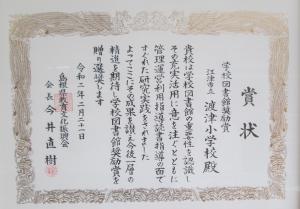 賞状
学校図書館奨励賞
江津市立 渡津小学校殿
貴校は学校図書館の重要性を認識し
その充実活用に意を注ぐとともに
管理運営利用指導読書指導の面で
すぐれた研究実践をされました
よってここにその成果を讃え今後一層の
精進を期待し学校図書館奨励賞を
贈り選奨します
令和二年二月二十一日
島根県教育文化振興会
会長 今井直樹